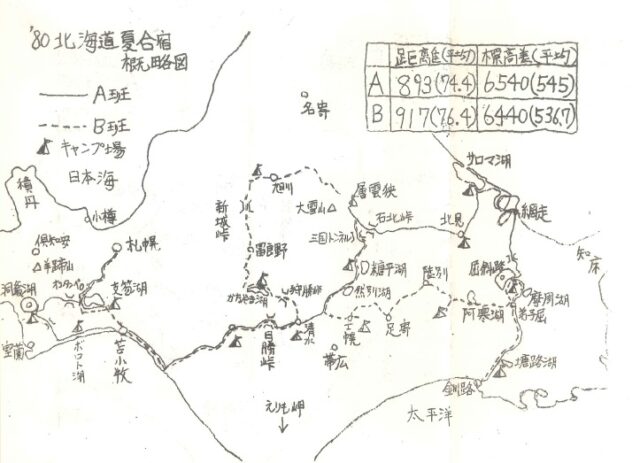 '80北海道夏合宿
概略図
A班
B班
キャンプ場
距離(平均) 標高差(平均)
A 893(74.4) 6540(545)
B 917(76.4) 6440(536.7)
日本海
積丹
小樽
倶知安
羊蹄山
洞爺湖
室蘭
札幌
支笏湖
ポロト湖
苫小牧
名寄
旭川
新城峠
富良野
かなやま湖
狩勝峠
日勝峠
清水
大雪山
層雲峡
石北峠
三国トンネル
糠平湖
然別湖
士幌
帯広
足寄
陸別
北見
サロマ湖
網走
知床
屈斜路
摩周湖
弟子屈
阿寒湖
塘路湖
釧路
太平洋
えりも岬